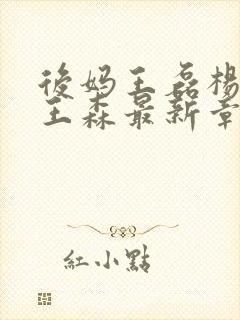 後妈王磊楊
王森最新章
紅小點